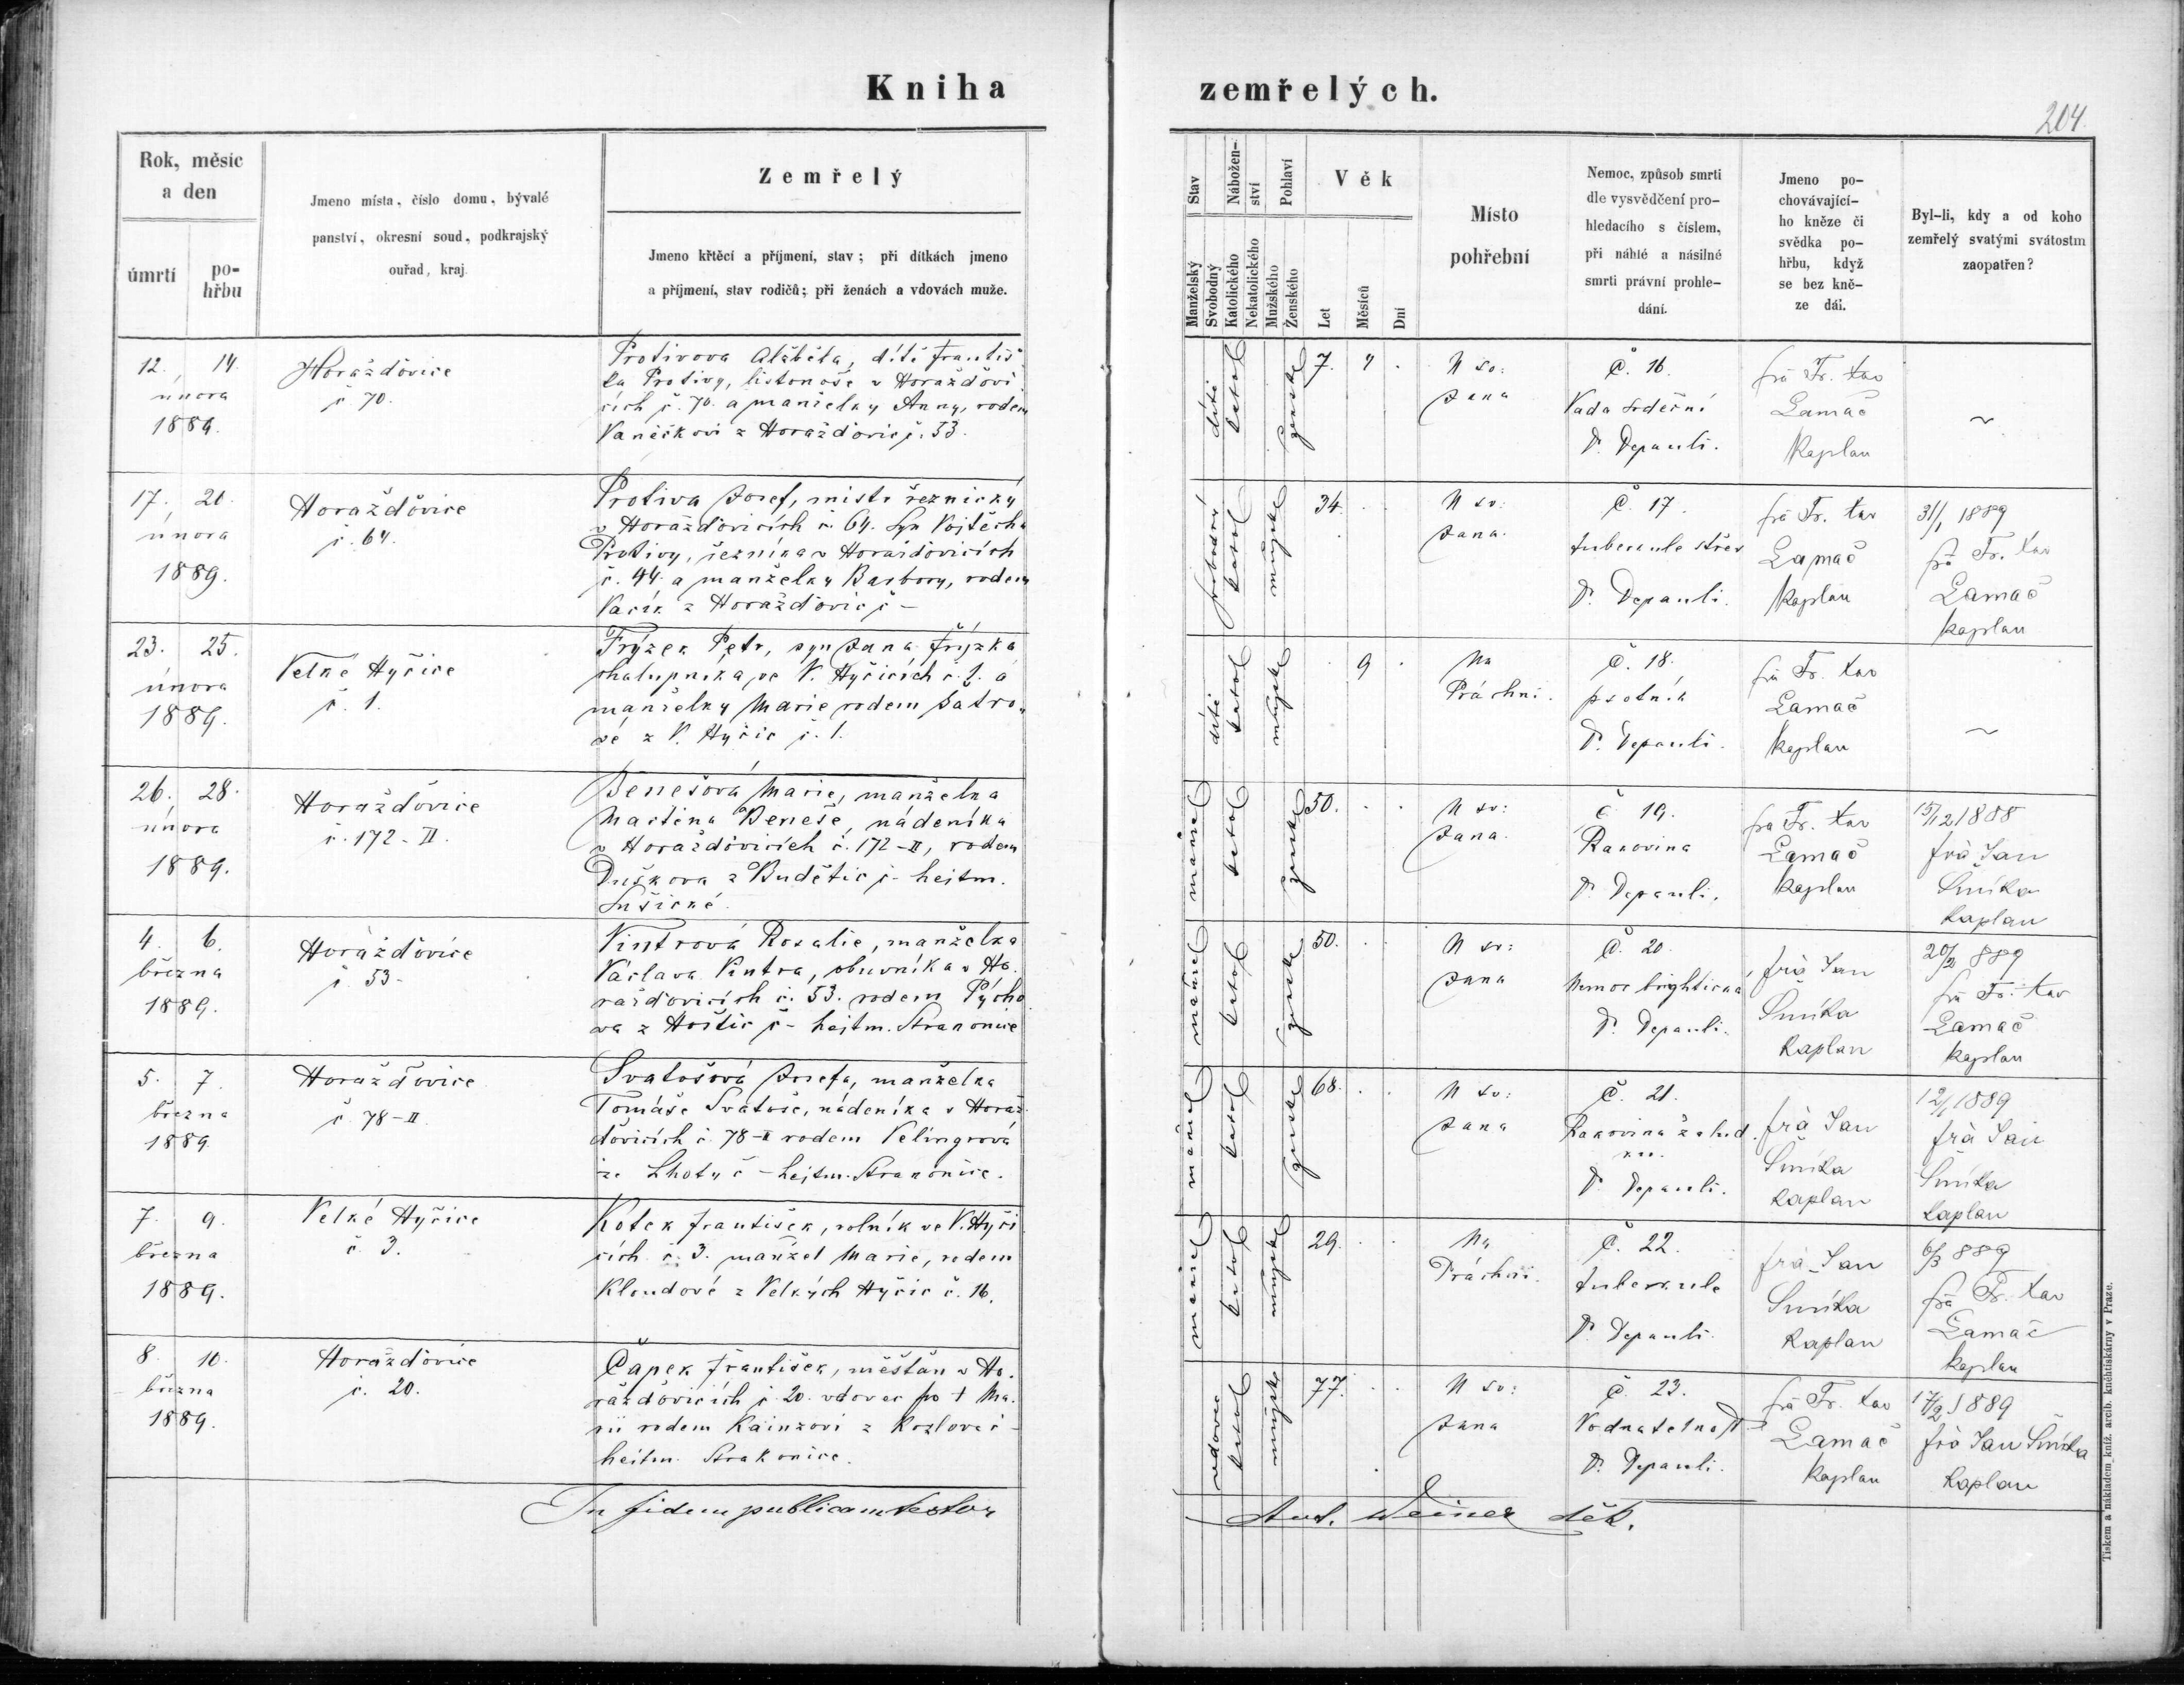 Kniha zemřelých.
204.
Rok, měsíc
a den
úmrtí
po-
hřbu
Jmeno místa, číslo domu, bývalé
panství, okresní soud, podkrajský
ouřad, kraj.
Zemřelý
Jmeno křtěcí a příjmení, stav; při dítkách jmeno
a příjmení, stav rodičů; při ženách a vdovách muže.
Stav
Manželský
Svobodný
Nábožen-
ství
Katolického
Nekatolického
Pohlaví
Mužského
Ženského
Věk
Let
Měsíců
Dní
Místo
pohřební
Nemoc, způsob smrti
dle vysvědčení pro-
hledacího s číslem,
při náhlé a násilné
smrti právní prohle-
dání.
Jmeno po-
chovávající-
ho kněze či
svědka po-
hřbu, když
se bez kně-
ze dái.
Byl-li, kdy a od koho
zemřelý svatými svátostm
zaopatřen?
12. 14.
února
1889.
Horažďovice
č. 70.
Protivova Alžběta, dítě Františ
ka Protivy, listonoše v Horažďovi
cích č. 70. a manželky Anny, rodem
Vaněčkovi z Horažďovic č. 53.
dítě
katol
ženské
7.
U sv:
Jana
Č. 16.
Vada srdeční
Dr. Depauli.
frà Fr. Xav
Lamač
Kaplan
~
17. 20.
února
1889.
Horažďovice
č. 64.
Protiva Josef, mistr řeznický
v Horažďovicích č. 64. Syn Vojtěcha
Protivy, řezníka v Horažďovicích
č. 44. a manželky Barbory, rodem
Vacík z Horažďovic č –
svobodný
katol
mužské
34.
U sv:
Jana.
Č. 17.
tuberkule střev
Dr. Depauli.
frà Fr. Xav
Lamač
Kaplan
31/1 1889
frà Fr. Xav
Lamač
kaplan
23. 25.
února
1889.
Velké Hyčice
č. 1.
Frýzek Petr, syn Jana Frýzka
chalupníka ve V. Hyčicích č. 1. a
manželky Marie rodem Šatro-
vé z V. Hyčic č. 1.
dítě
katol
mužské
9
Na
Práchni.
Č. 18.
psotník
Dr. Depauli.
frà Fr. Xav
Lamač
kaplan
~
26. 28.
února
1889.
Horažďovice
č. 172-II.
Benešová Marie, manželka
Martina Beneše, nádeníka
v Horažďovicích č. 172-II, rodem
Dušková z Budětic č – hejtm.
Sušické.
manžel
katol
ženské
50.
U sv:
Jana.
Č 19.
Rakovina
Dr. Depauli.
frà Fr. Xav
Lamač
kaplan
15/12 1888
frà Jan
Šmíka
kaplan
4. 6.
března
1889.
Horažďovice
č. 53.
Vintrová Rosalie, manželka
Václava Vintra, obuvníka v Ho.
ražďovicích č. 53. rodem Pýcho
va z Hoštic č – hejtm. Strakonice
manžel
katol
ženské
50.
U sv:
Jana
Č. 20
Nemoc brightická
Dr. Depauli.
frà Jan
Šmíka
Kaplan
20/2 889
frà Fr. Xav
Lamač
kaplan
5. 7.
března
1889
Horažďovice
č. 78-II
Svatošová Josefa, manželka
Tomáše Svatoše, nádeníka v Horaž
ďovicích č. 78-II rodem Velingrová
ze Lhoty č – hejtm. Strakonice.
manžel
katol
ženské
68.
U sv:
Jana
Č. 21.
Rakovina žalud.
Dr. Depauli.
frà Jan
Šmíka
kaplan
1889
frà Jan
Šmíka
kaplan
7. 9.
března
1889.
Velké Hyčice
č. 3.
Kotek František, rolník ve V. Hyči
cích č. 3. manžel Marie, rodem
Kloudové z Velkých Hyčic č. 16.
manžel
katol
mužské
29.
Na
Práchni.
Č. 22.
tuberkule
Dr. Depauli.
frà Jan
Šmíka
kaplan
6/3 889
frà Fr. Xav
Lamač
kaplan
8. 10.
března
1889.
Horažďovice
č. 20.
Čapek František, měšťan v Ho.
ražďovicích č. 20. vdovec po † Ma.
rii rodem Kainzovi z Kozlova č –
hejtm. Strakonice.
vdovec
katol
mužské
77.
U sv:
Jana
Č. 23.
Vodnatelnost
Dr. Depauli.
frà Fr. Xav
Lamač
kaplan
17/2 1889
frà Jan Šmíka
kaplan
In fidem publicam testor
Ant. Weiner děk.
Tiskem a nákladem kníž. arcib. kněhtiskárny v Praze.